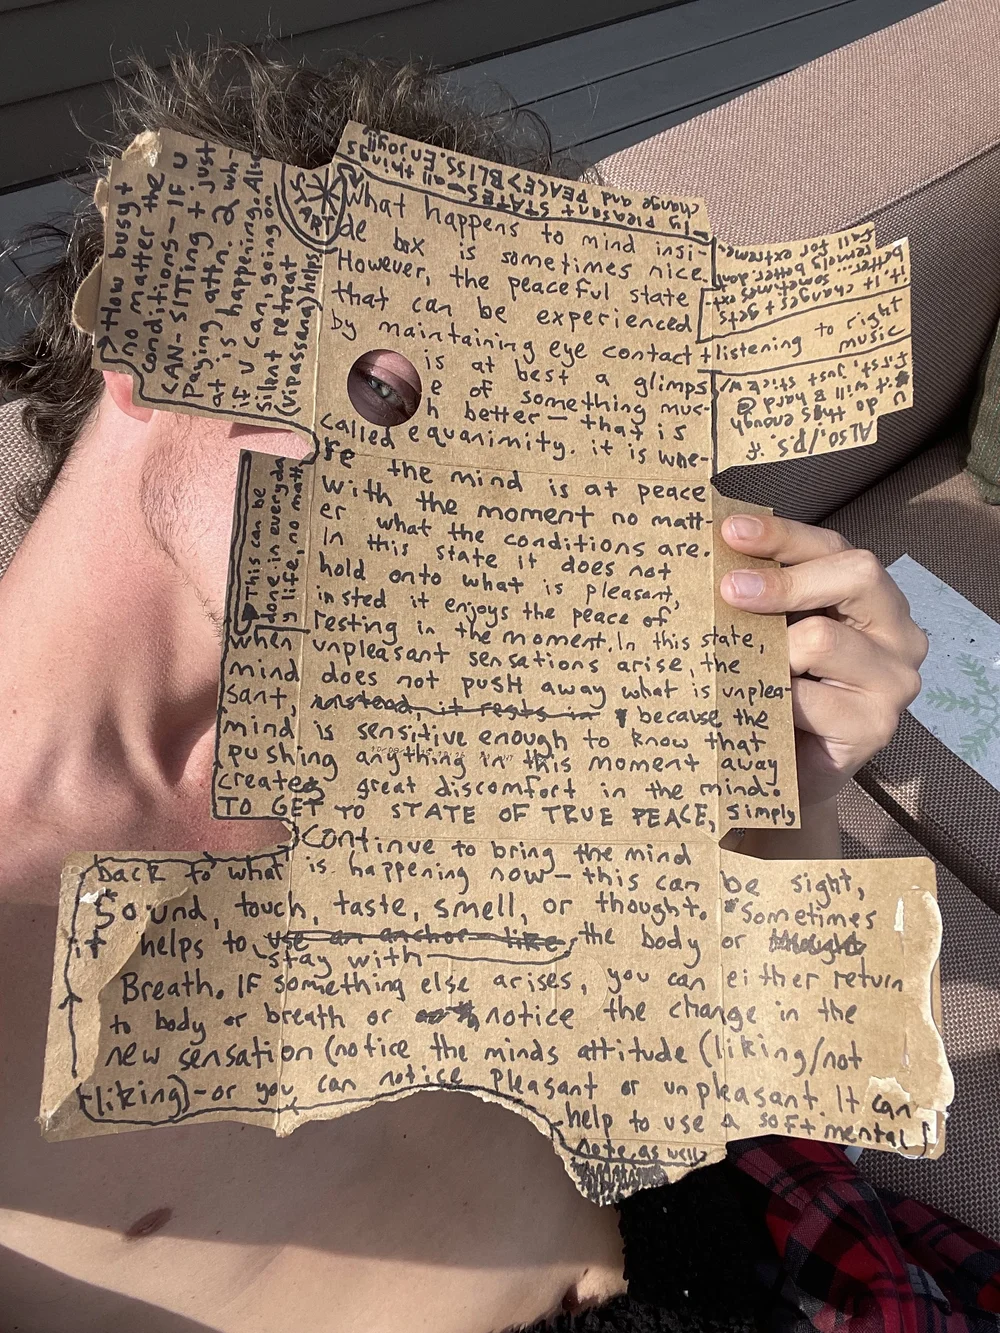 START
What happens to mind insi-
de box is sometimes nice.
However, the peaceful state
that can be experienced
by maintaining eye contact +
listening to right
music
is at best a glimps
e of something muc-
h better — that is
called equanimity. it is whe-
re the mind is at peace
with the moment no matt-
er what the conditions are.
In this state it does not
hold onto what is pleasant,
insted it enjoys the peace of
resting in the moment. In this state,
when unpleasant sensations arise, the
mind does not push away what is unplea-
sant, instead, it rests in because the
mind is sensitive enough to know that
pushing anything in this moment away
creates great discomfort in the mind.
TO GET TO STATE OF TRUE PEACE, simply
Continue to bring the mind
back to what is happening now — this can be sight,
Sound, touch, taste, smell, or thought. Sometimes
it helps to use an anchor-like the body or thought
stay with
Breath. IF something else arises, you can either return
to body or breath or notice the change in the
new sensation (notice the minds attitude (liking/not
liking) - or you can notice pleasant or unpleasant. It can
help to use a soft mental
note, as well
This can be
done in everyda
y life, no matt
How busy +
no matter the
conditions — IF U
CAN - SITTING + just
paying attn. 2 wh-
at is happening. Also
if u can, going on
Silent retreat
(vipassana) helps
ly PLEASANT STATES - all things
change and PEACE > BLISS. Enjoy!!
fall for extreme-
it changes + gets
better... sometimes ext-
ALSO, / P.S. if
u do this enough
it will B hard @
first, just stick w/